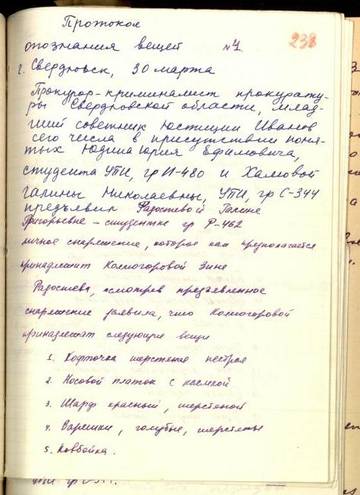 Протокол
опознания вещей №1 238
г. Свердловск, 30 марта
Прокурор-криминалист прокурату-
ры Свердловской области, млад-
ший советник юстиции Иванов
сего числа в присутствии поня-
тых Юдина Юрия Ефимовича,
студента УПИ, гр И-480 и Хамовой
Галины Николаевны, УПИ, гр С-344
предъявил Радостевой Галине
Григорьевне - студентке гр Р-462
личное снаряжение, которое как предполагается
принадлежит Колмогоровой Зине
Радостева, осмотрев предъявленное
снаряжение заявила, что Колмогоровой
принадлежат следующие вещи
1. Кофточка шерстяная пестрая
2. Носовой платок с каемкой
3. Шарф красный, шерстяной
4. Варежки, голубые, шерстяные
5. Ковбойка.